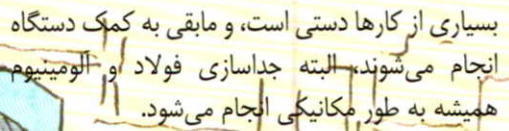 بسیاری از کارها دستی است، و مابقی به کمک دستگاه
انجام می‌شوند، البته جداسازی فولاد و آلومینیوم
همیشه به طور مکانیکی انجام می‌شود.